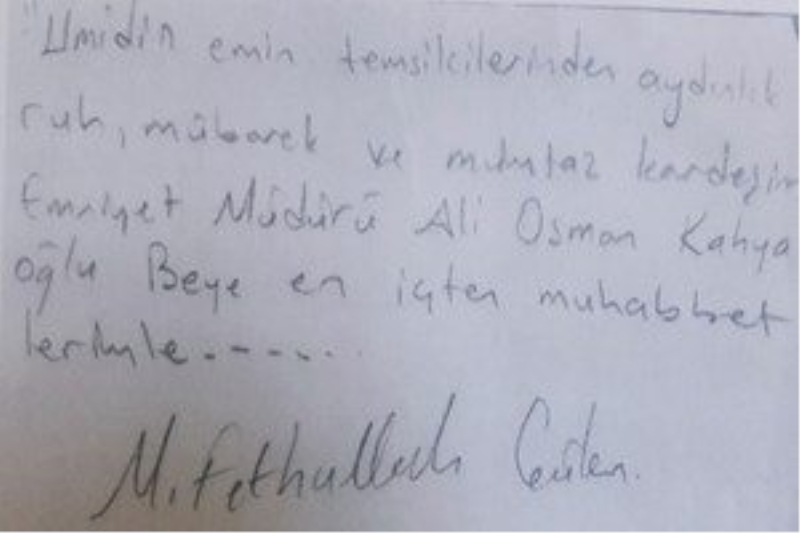 "Ümidin emin temsilcilerinden aydınlık
ruh, mübarek ve mümtaz kardeşim
Emniyet Müdürü Ali Osman Kahya
oğlu Beye en içten muhabbet
lerimle.------
M. Fethullah Gülen.